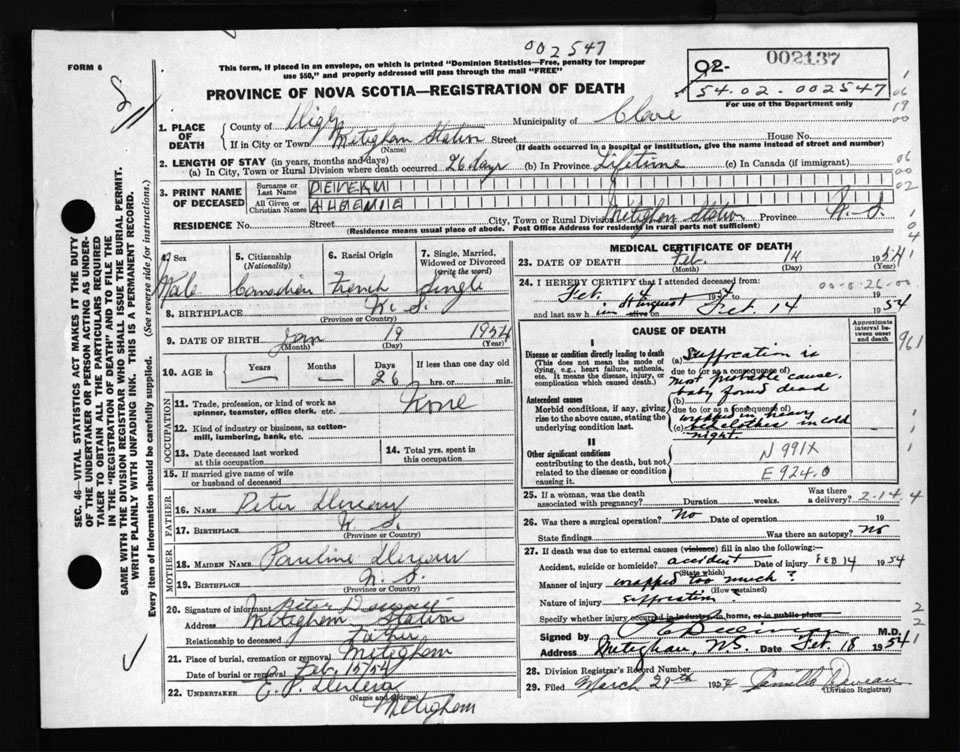 002547
FORM 6
This form, if placed in an envelope, on which is printed "Dominion Statistics—Free, penalty for improper
use $50," and properly addressed will pass through the mail "FREE"
PROVINCE OF NOVA SCOTIA—REGISTRATION OF DEATH
002137
02-
54.02.002547
For use of the Department only
SEC. 46—VITAL STATISTICS ACT MAKES IT THE DUTY
OF THE UNDERTAKER OR PERSON ACTING AS UNDER-
TAKER TO OBTAIN ALL THE PARTICULARS REQUIRED
IN THE "REGISTRATION OF DEATH" AND TO FILE THE
SAME WITH THE DIVISION REGISTRAR WHO SHALL ISSUE THE BURIAL PERMIT.
WRITE PLAINLY WITH UNFADING INK. THIS IS A PERMANENT RECORD.
Every item of information should be carefully supplied. (See reverse side for instructions.)
1. PLACE OF DEATH
County of Digby Municipality of Clare
If in City or Town Meteghan Station Street House No.
(Name) (If death occurred in a hospital or institution, give the name instead of street and number)
2. LENGTH OF STAY (in years, months and days)
(a) In City, Town or Rural Division where death occurred 26 days (b) In Province Lifetime (c) In Canada (if immigrant)
3. PRINT NAME OF DECEASED
Surname or Last Name DEVEAU
All Given or Christian Names
RESIDENCE No. Street City, Town or Rural Division Meteghan Station Province N.S.
(Residence means usual place of abode. Post Office Address for residents in rural parts not sufficient)
4. Sex
Male
5. Citizenship
(Nationality)
Canadian
6. Racial Origin
French
7. Single, Married,
Widowed or Divorced
(write the word)
Single
8. BIRTHPLACE N.S.
(Province or Country)
9. DATE OF BIRTH Jan 19 1954
(Month) (Day) (Year)
10. AGE in
Years Months Days If less than one day old
— — 26 hrs. or min.
OCCUPATION
11. Trade, profession, or kind of work as
spinner, teamster, office clerk, etc. None
12. Kind of industry or business, as cotton-
mill, lumbering, bank, etc.
13. Date deceased last worked
at this occupation
14. Total yrs. spent in
this occupation
15. If married give name of wife
or husband of deceased
FATHER
16. Name Peter Deveau
17. Birthplace N.S.
(Province or Country)
MOTHER
18. MAIDEN NAME Pauline Deveau
19. BIRTHPLACE N.S.
(Province or Country)
20. Signature of informant Peter
Address Meteghan Station
Relationship to deceased Father
21. Place of burial, cremation or removal Meteghan
Date of burial or removal Feb. 15/54
22. UNDERTAKER
(Name and address)
Meteghan
MEDICAL CERTIFICATE OF DEATH
23. DATE OF DEATH Feb. 14 1954
(Month) (Day) (Year)
24. I HEREBY CERTIFY that I attended deceased from
Feb. 14 1954
and last saw h im alive on Feb. 14 1954
00-0-26-00
CAUSE OF DEATH
Approximate
interval be-
tween onset
and death
I
Disease or condition directly leading to death
(This does not mean the mode of
dying, e.g., heart failure, asthenia,
etc. It means the disease, injury, or
complication which caused death.)
(a) Suffocation is
due to (or as a consequence of)
most probable cause.
baby found dead
Antecedent causes
Morbid conditions, if any, giving
rise to the above cause, stating the
underlying condition last.
(b)
due to (or as a consequence of)
wrapped in heavy
(c) bedclothes in cold
night.
II
Other significant conditions
contributing to the death, but not
related to the disease or condition
causing it.
N 991X
E 924.0
961
25. If a woman, was the death
associated with pregnancy? Duration weeks. Was there
a delivery? 2-14-4
26. Was there a surgical operation? No Date of operation 19
State findings Was there an autopsy? No
27. If death was due to external causes (violence) fill in also the following:
Accident, suicide or homicide? accident Date of injury FEB 14 1954
(State which)
Manner of injury wrapped too much?
(How sustained)
Nature of injury suffocation
Specify whether injury occurred in industry, in home, or in public place
Signed by M.D.
Address Meteghan, N.S. Date Feb. 18 1954
28. Division Registrar's Record Number
29. Filed March 29th 1954 Camille Deveau
(Division Registrar)